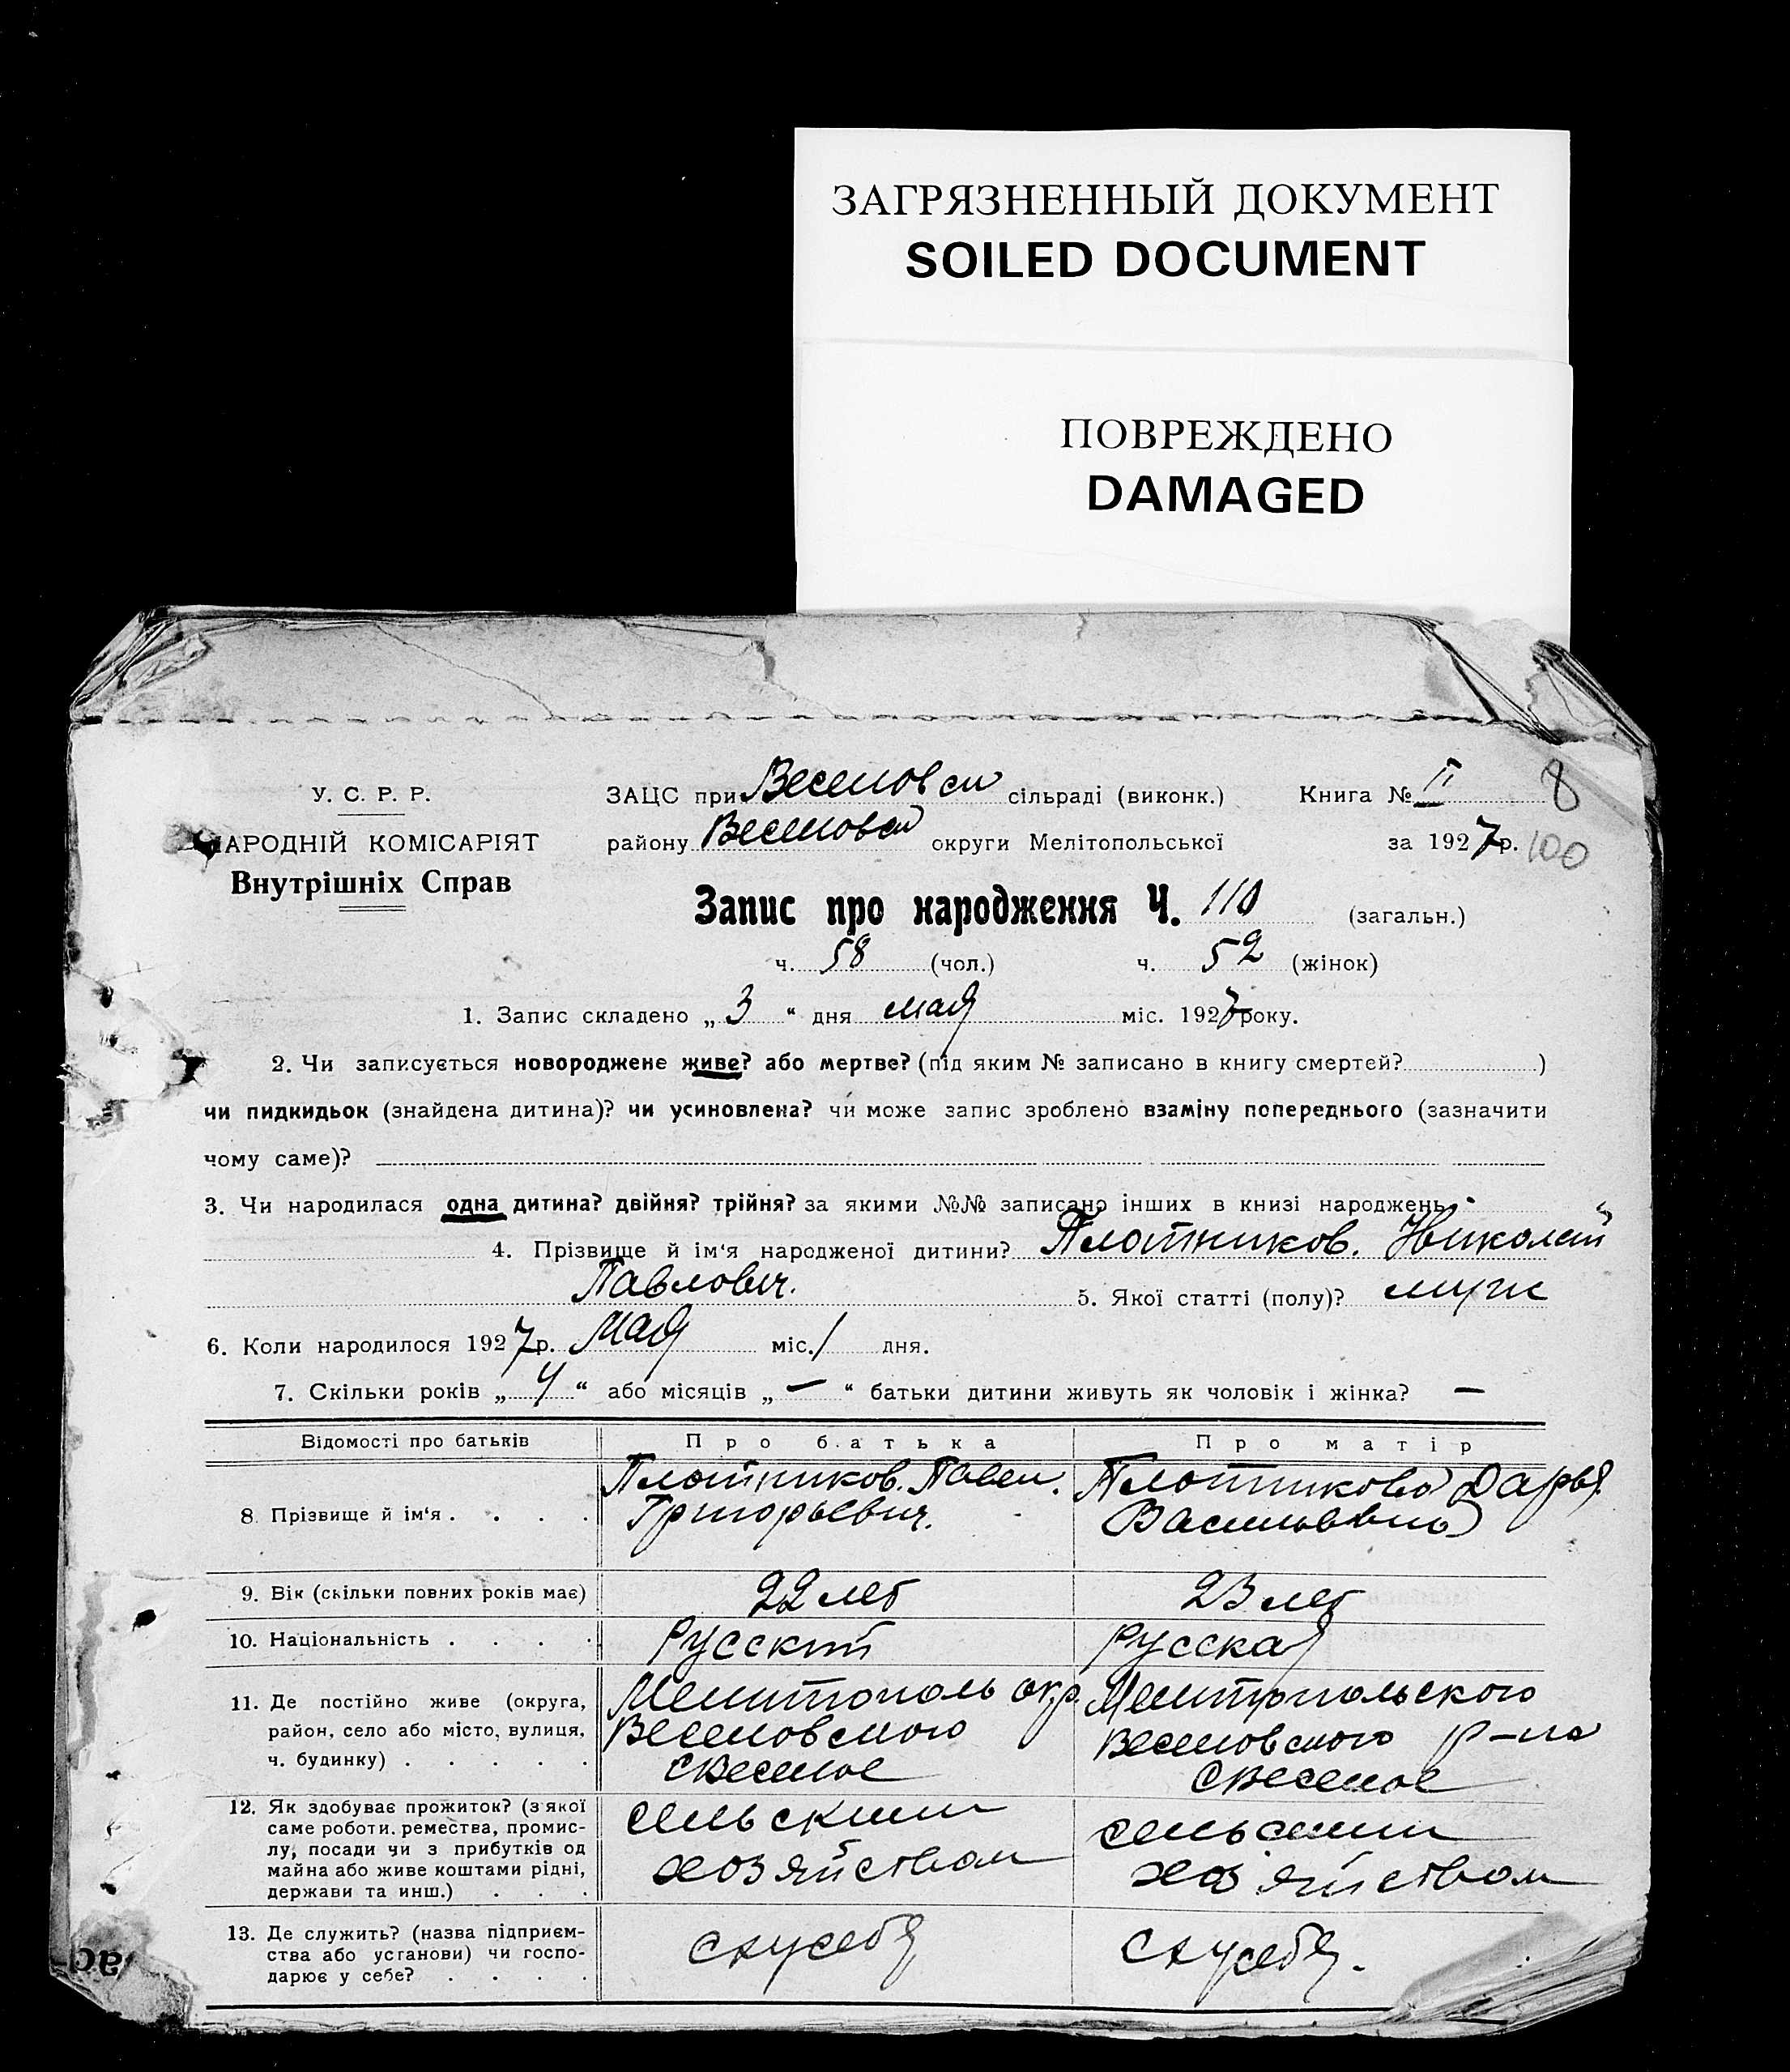 ЗАГРЯЗНЕННЫЙ ДОКУМЕНТ
SOILED DOCUMENT
ПОВРЕЖДЕНО
DAMAGED
У. С. Р. Р. ЗАЦС при Веселовск сільраді (виконк.) Книга № II 8
НАРОДНІЙ КОМІСАРІЯТ району Веселовск округи Мелітопольської за 1927р. 100
Внутрішніх Справ
Запис про народження Ч. 110 (загальн.)
ч. 58 (чол.) ч. 52 (жінок)
1. Запис складено „3“ дня мая міс. 1927 року.
2. Чи записується новороджене живе? або мертве? (під яким № записано в книгу смертей? )
чи пидкидьок (знайдена дитина)? чи усиновлена? чи може запис зроблено взаміну попереднього (зазначити
чому саме)?
3. Чи народилася одна дитина? двійня? трійня? за якими №№ записано інших в книзі народжень
4. Прізвище й ім‘я народженої дитини? Плотников. Николай
Павлович. 5. Якої статті (полу)? муж
6. Коли народилося 1927р. мая міс. 1 дня.
7. Скільки років „4“ або місяців „—“ батьки дитини живуть як чоловік і жінка? —
Відомості про батьків Про батька Про матір
Плотников. Павел. Плотникова Дарья
8. Прізвище й ім‘я . . . . Григорьевич. Васильевна
9. Вік (скільки повних років має) 22 лет 23 лет
10. Національність . . . . Русский Русская
11. Де постійно живе (округа, Мелитополь окр. Мелитопольского
район, село або місто, вулиця, Веселовского Веселовского р-на
ч. будинку) . . . . . с Веселое с Веселое
12. Як здобуває прожиток? (з якої сельским
саме роботи, ремества, промис- сельским
лу, посади чи з прибутків од
майна або живе коштами рідні, хозяйством хозяйством
держави та инш.) . . .
13. Де служить? (назва підприєм-
ства або установи) чи госпо- сх у себя сх у себя.
дарює у себе? . . . .